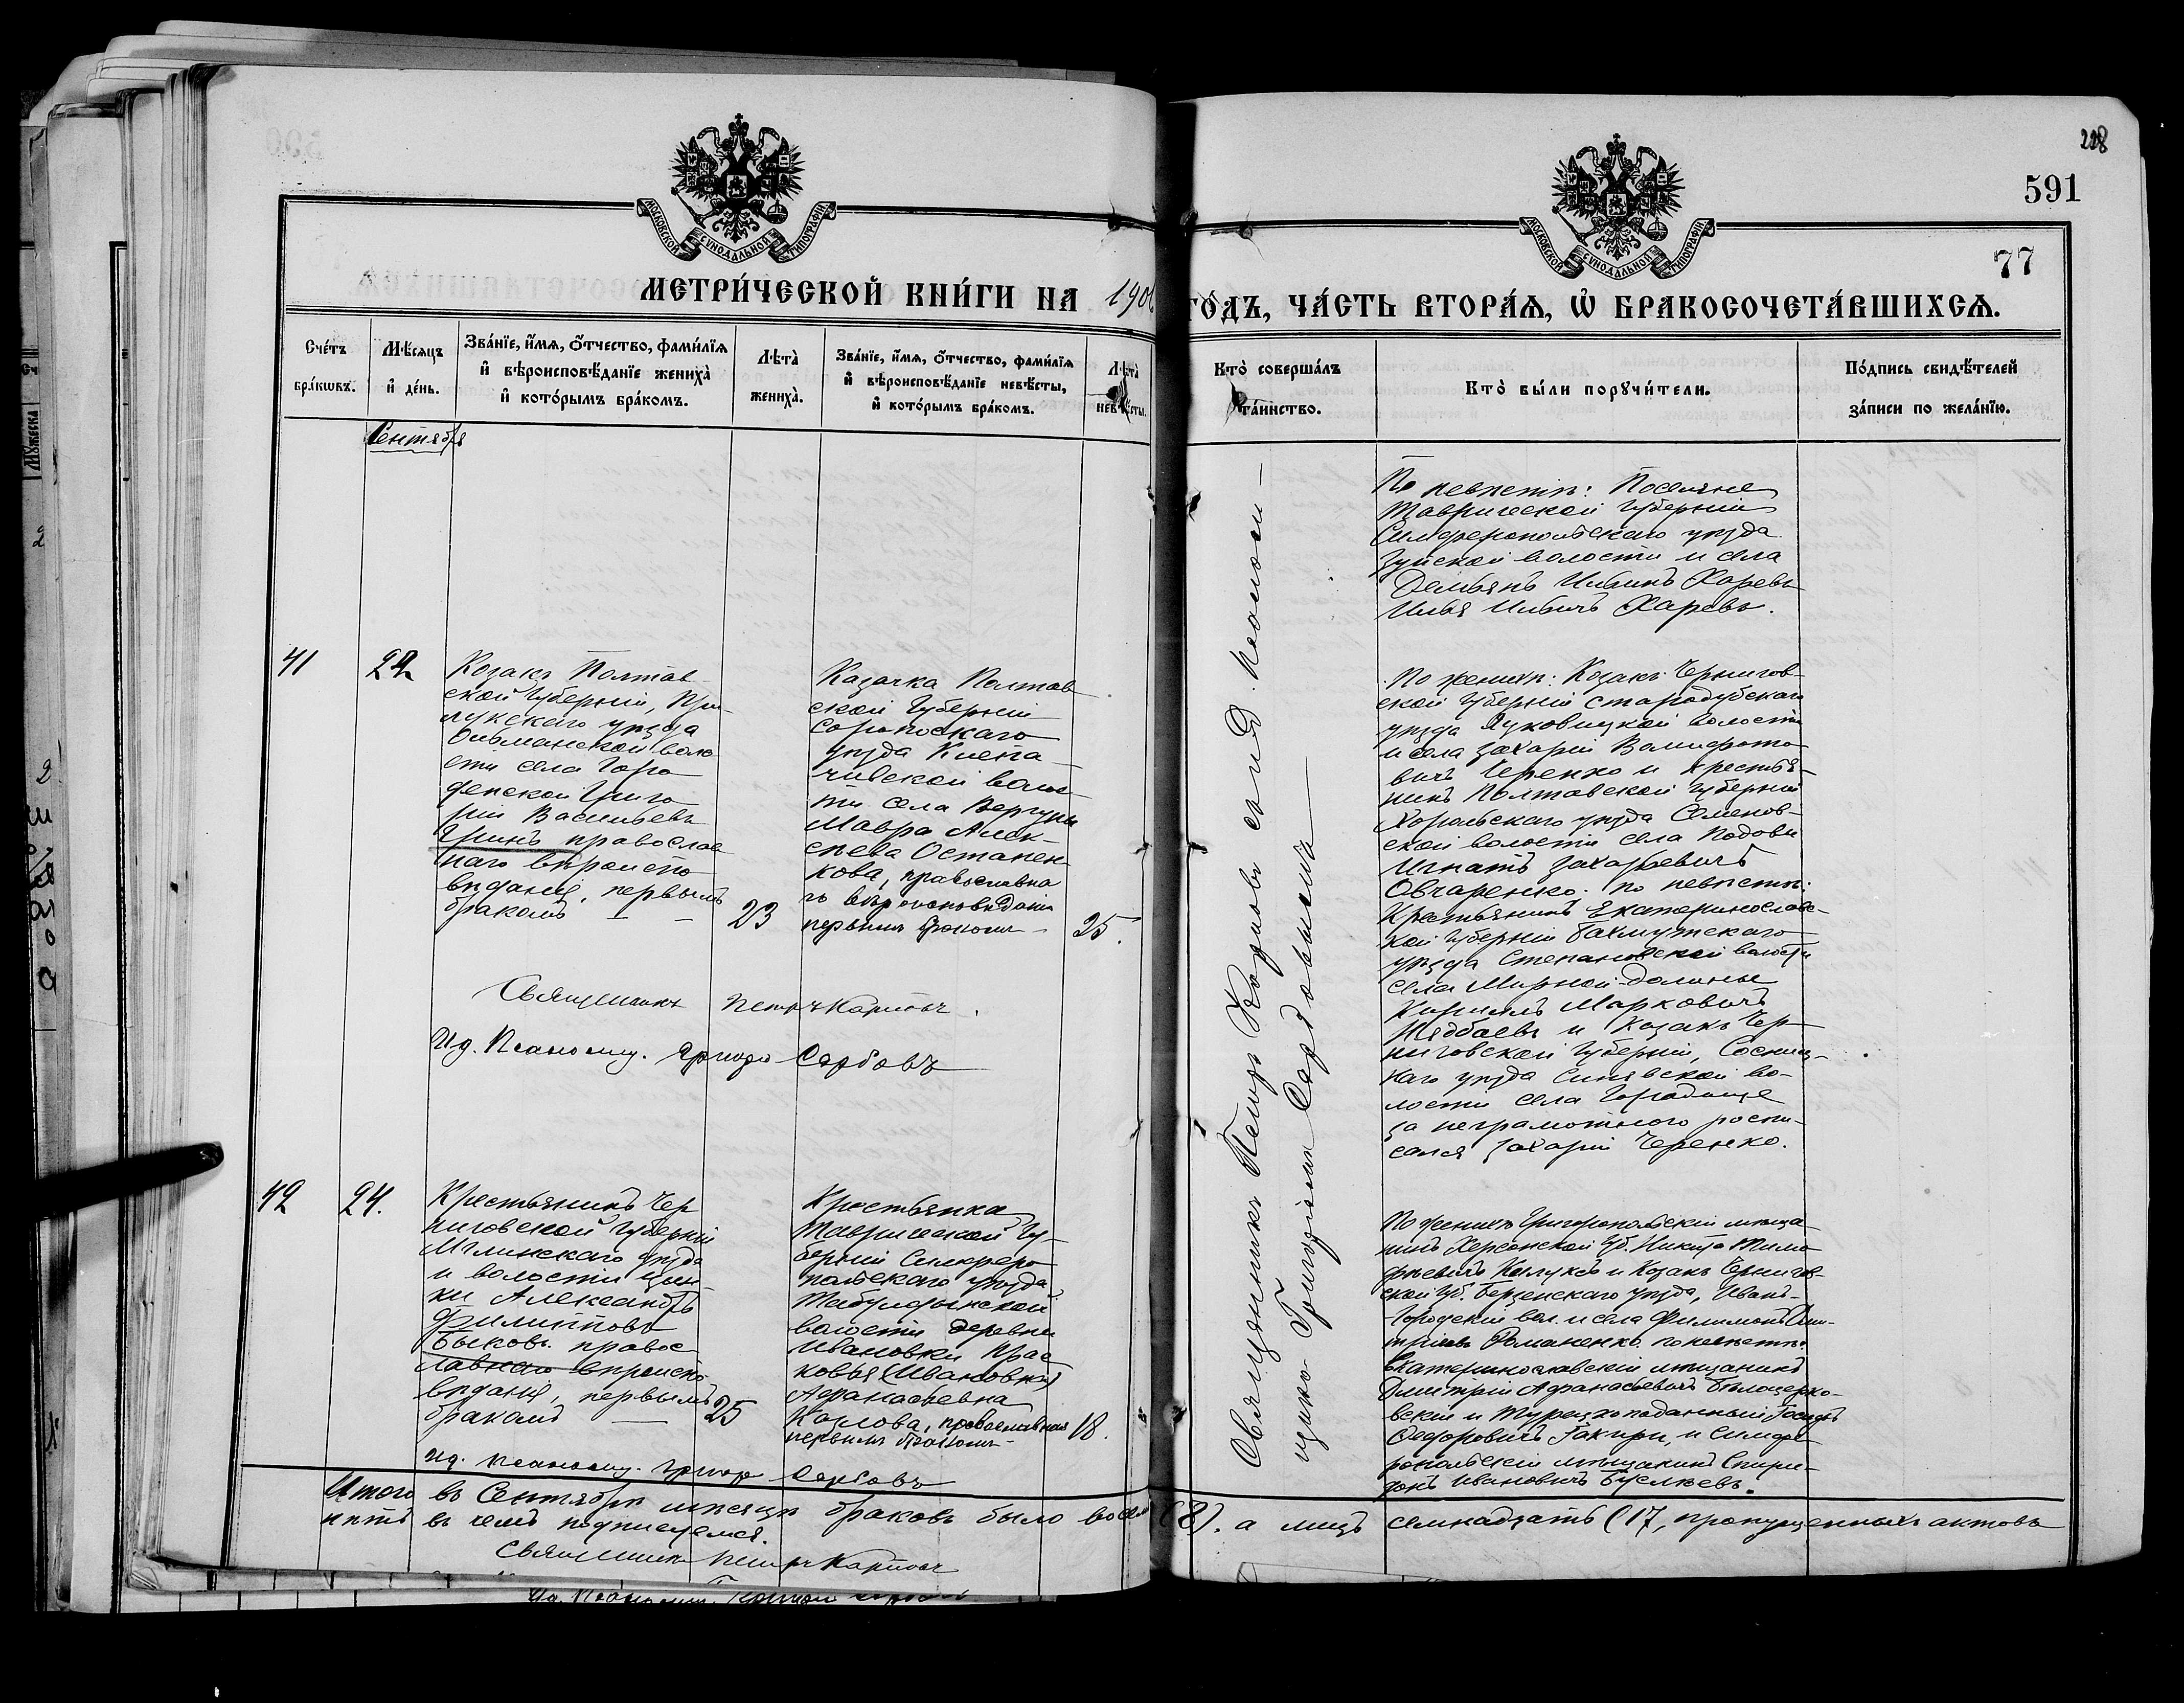 228
591
77
МОСКОВСКОЙ СѴНОДАЛЬНОЙ ТИПОГРАФІИ
МОСКОВСКОЙ СѴНОДАЛЬНОЙ ТИПОГРАФІИ
МЕТРИ́ЧЕСКОЙ КНИ́ГИ НА 190
ГО́ДЪ, ЧА́СТЬ ВТОРА́Ѧ, Ѡ҆ БРАКОСОЧЕТА́ВШИХСѦ.
Сче́тъ
бра́кѡвъ.
Мѣ́сѧцъ
и҆ де́нь.
Зва́нїе, и҆́мѧ, ѻ҆́тчество, фами́лїѧ
и҆ вѣроисповѣ́данїе жениха̀
и҆ кото́рымъ бра́комъ.
Лѣта̀
жениха̀.
Зва́нїе, и҆́мѧ, ѻ҆́тчество, фами́лїѧ
и҆ вѣроисповѣ́данїе невѣ́сты,
и҆ кото́рымъ бра́комъ.
Лѣта̀
невѣ́сты.
Кто̀ соверша́лъ
та́инство.
Кто̀ бы́ли порꙋчи́тели.
По́дпись свидѣ́телей
за́писи по жела́нїю.
Сентябрь
По невѣстѣ: Поселяне
Таврической губерніи
Симферопольскаго уѣзда
Зуйской волости и села
Демьянъ Ильинъ Харевъ
Илья Ильичъ Харевъ.
41
24
Козакъ Полтав-
ской Губерніи, При-
лукскаго уѣзда
воло
сти села Горо
Григо
рій Васильевъ
православ
наго вѣроиспо
вѣданія, первымъ
бракомъ
23
Казачка Полтав
ской Губерніи
уѣзда
волос
ти села Вергуны
Мавра Алек
сѣева Остапен
кова, православна
го вѣроисповѣданія
первымъ бракомъ
25.
По женихѣ: Козакъ Чернигов-
ской Губерніи Стародубскаго
уѣзда волости
и села Захарій
вичъ Черенко и крестья-
нинъ Полтавской Губерніи
Хорольскаго уѣзда Семенов-
ской волости села
Игнатъ Захарьевичъ
Овчаренко. по невѣстѣ:
Крестьянинъ Екатеринослав-
кой губерніи Бахмутскаго
уѣзда Степановской волости
села Мирной-Долины
Кириллъ Марковичъ
и Козакъ Чер-
ниговской Губерніи, Сосниц-
каго уѣзда Синявской во-
лости села Городище
за неграмотного роспи-
сался Захарій Черенко.
Священникъ Петръ
И.д. Псаломщ. Сербовъ
Священникъ Петръ и и.д. Псаломщ-
щика Григорій
42
24.
Крестьянинъ Чер
ниговской Губерніи
Мглинскаго уѣзда
и волости
Александръ
Филипповъ
Быковъ. правос
лавнаго вѣроиспо
вѣданія, первымъ
бракомъ
25
Крестьянка
Таврической Гу-
берніи Симферо
польскаго уѣзда
Табулдынской
волости деревни
Ивановки Прас
ковья (Ивановна)
Афанасьевна
Козлова, православная
первымъ бракомъ
18.
По женихѣ Григоропольскій мѣща-
нинъ Херсонской губ. Никита Тимо
фѣевичъ и Козакъ Чернигов-
ской губ. Борзенскаго уѣзда, Иванъ-
городской вол. и села Филимонъ Дми-
тріевъ Романенко по невѣстѣ:
Екатеринославскій мѣщанинъ
Дмитрій Афанасьевичъ Бѣлоцерко-
вскій и Турецкоподанный
Федоровичъ и Симфе
ропольскій мѣщанинъ Спири-
донъ Ивановичъ
И.д. Псаломщ. Сербовъ
Итого въ Сентябрѣ мѣсяцѣ браковъ было восем (8). а лицъ семнадцать (17, пропущенныхъ актовъ
нѣтъ въ чемъ подписуемся.
Священникъ Петръ
И.д. Псаломщ.